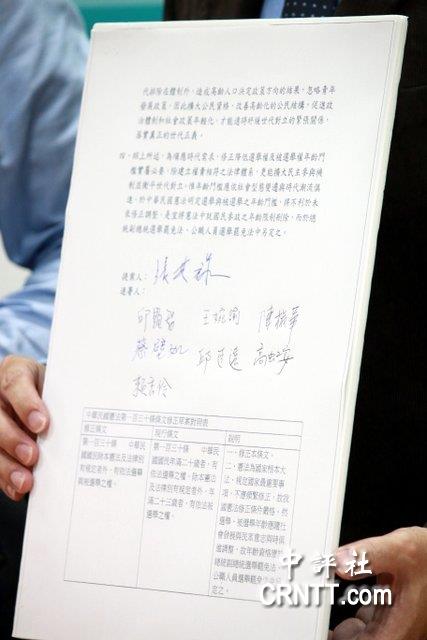 代排除在體制外,造成高齡人口決定政策方向的結果,忽略青年
發展政策。因此擴大公民資格,改善高齡化的公民結構,促進政
治體制和社會政策年輕化,才能適時紓緩世代對立的緊張關係,
落實真正的世代正義。
四、綜上所述,為順應時代需求,修正降低選舉權及被選舉權年齡門
檻實屬必要,除建立權責相符之法律體系,更能擴大民主參與機
制並衡平世代對立。惟年齡門檻應依社會型態變遷與時代潮流俱
進,於中華民國憲法明定選舉與被選舉之年齡門檻,將不利於未
來修正調整,是宜將憲法中就國民參政之年齡限制刪除,而於總
統副總統選舉罷免法、公職人員選舉罷免法中另定之。
提案人:
連署人:
邱顯智 王婉諭 陳椒華
蔡壁如 邱臣遠 高虹安
賴香伶
中華民國憲法第一百三十條條文修正草案對照表
修正條文 現行條文 說明
第一百三十條 中華民
國國民除本憲法及法律別
有規定者外,有依法選舉
與被選舉之權。
第一百三十條 中華民
國國民年滿二十歲者,有
依法選舉之權。除本憲法
及法律別有規定者外,年
滿二十三歲者,有依法被
選舉之權。
一、修正本條文。
二、憲法為國家根本大
法,規定國家最重要事
項,不應頻繁修正,故我
國憲法修正條件嚴格。然
選舉、被選舉年齡應隨社
會發展與民眾意志與時俱
進調整,故年齡資格應於
總統副總統選舉罷免法、
公職人員選舉罷免法中另
定之。
中評社
CRNTT.com